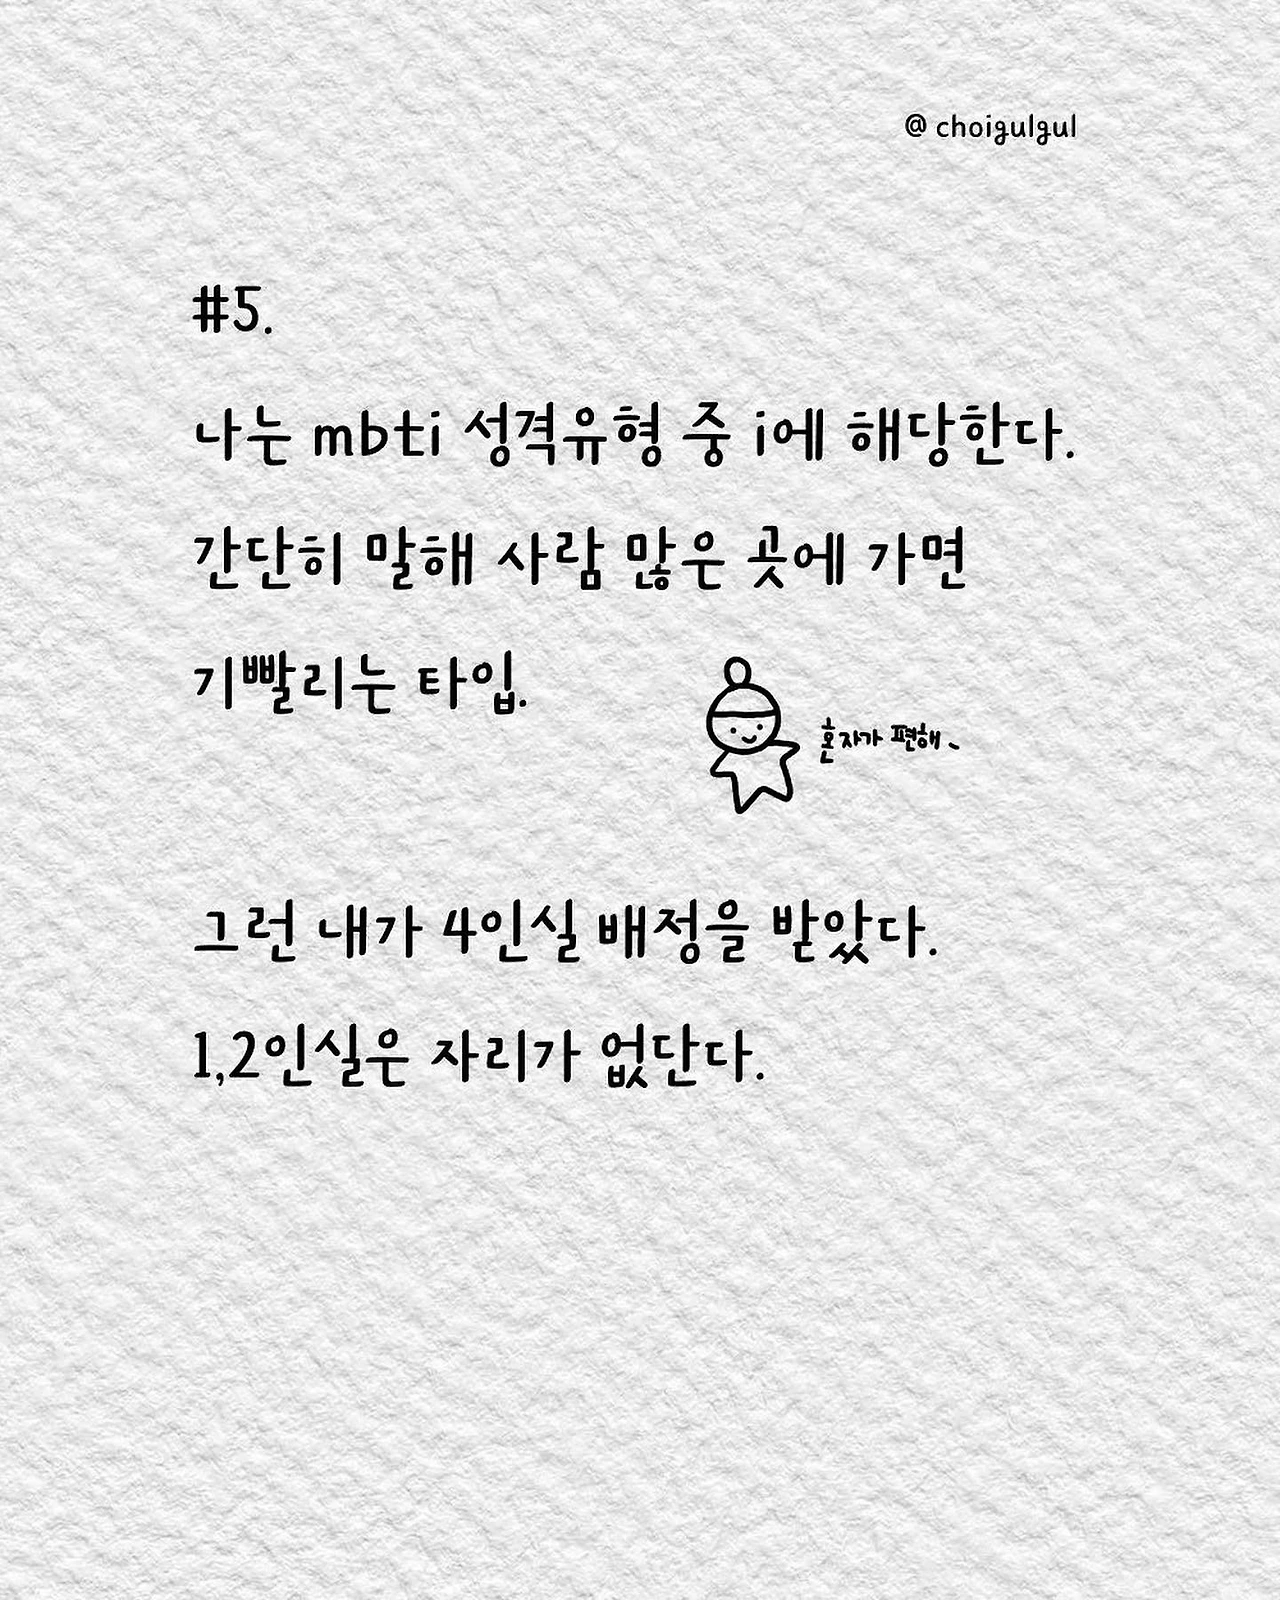 @ choigulgul
#5.
나는 mbti 성격유형 중 i에 해당한다.
간단히 말해 사람 많은 곳에 가면
기빨리는 타입.
혼자가 편해~
그런 내가 4인실 배정을 받았다.
1,2인실은 자리가 없단다.